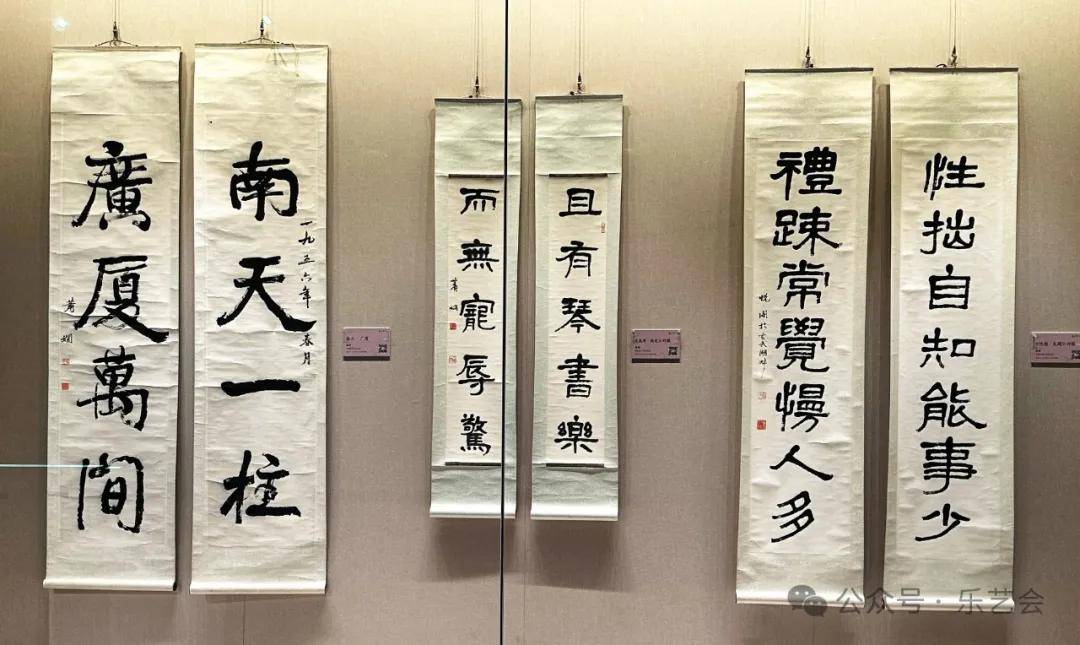 性拙自知能事少
禮踈常覺慢人多
且有琴書樂
而無寵辱驚
南天一柱
一九五六年春月
廣厦萬間
公众号·乐艺会